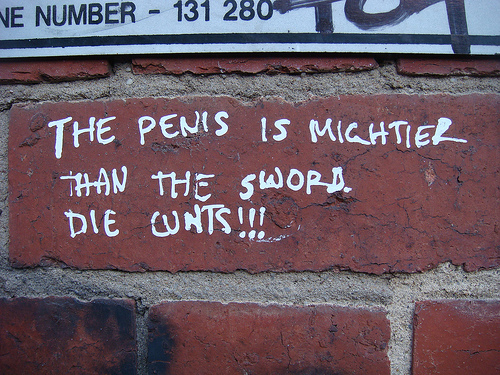 NE NUMBER - 131 280
THE PENIS IS MIGHTIER
THAN THE SWORD.
DIE CUNTS!!!